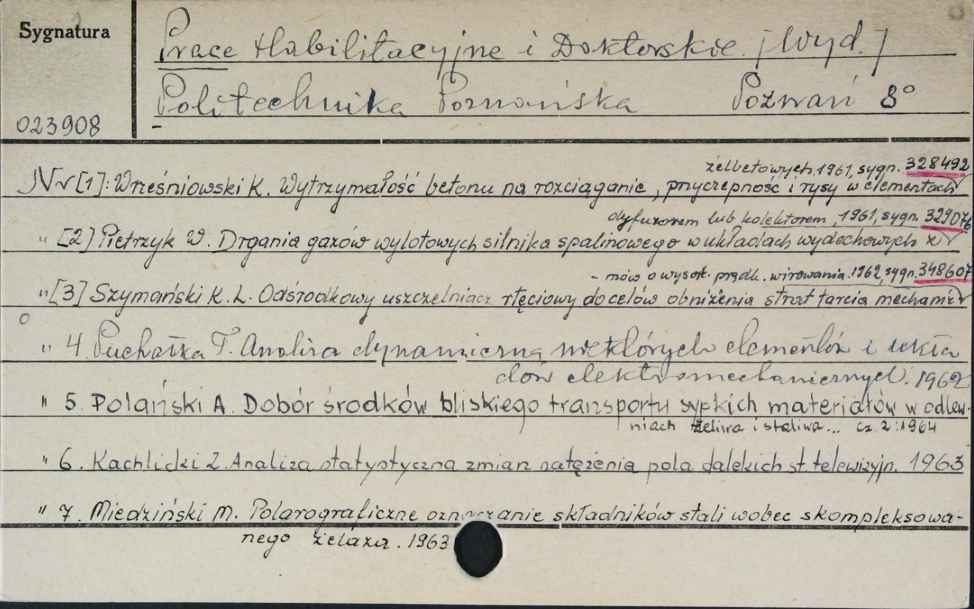 Sygnatura
Prace Habilitacyjne i Doktorskie. [Wyd.]
Politechnika Poznańska Poznań 8°
023908
żelbetowych, 1961, sygn. 328492
Nr [1]: Wrześniowski K. Wytrzymałość betonu na rozciąganie, przyczepność i rysy w elementach
dyfuzorem lub kolektorem, 1961, sygn. 329076
" [2] Pietrzyk W. Drgania gazów wylotowych silnika spalinowego w układach wydechowych z
- mów o wysok. prędk. wirowania. 1962, sygn. 348607
" [3] Szymański K. L. Odśrodkowy uszczelniacz rtęciowy do celów obniżenia strat tarcia mechani-
" 4. Puchałka T. Analiza dynamiczna niektórych elementów i ukła
dów elektromechanicznych. 1962
" 5. Polański A. Dobór środków bliskiego transportu sypkich materiałów w odlew-
niach żeliwa i staliwa... cz. 2: 1964
" 6. Kachlicki Z. Analiza statystyczna zmian natężenia pola dalekich st. telewizyjn. 1963
" 7. Miedziński M. Polarograficzne oznaczanie składników stali wobec skompleksowa-
nego żelaza. 1963